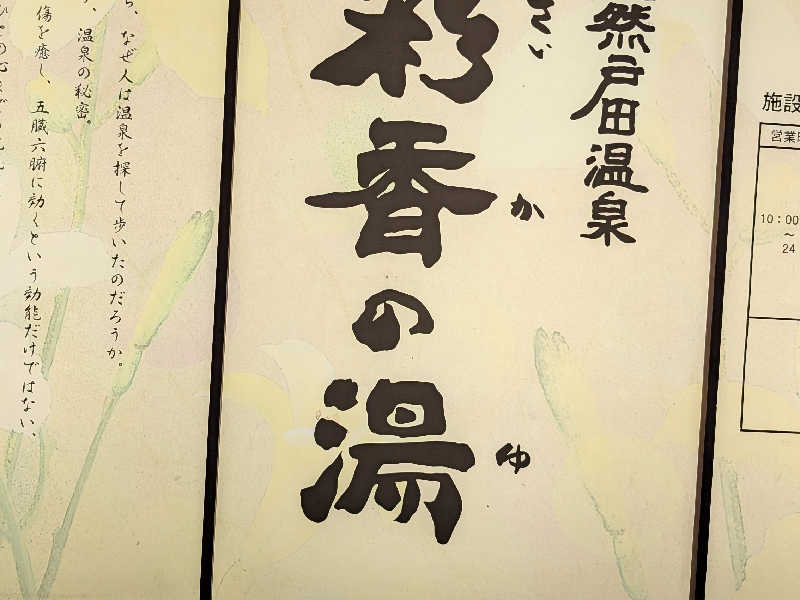 施設
営業時
10:00
～
24
然戸田温泉
さい
彩香の湯
か
ゆ
なぜ人は温泉を探して歩いたのだろうか。
温泉の秘密。
傷を癒し、五臓六腑に効くという効能だけではない、